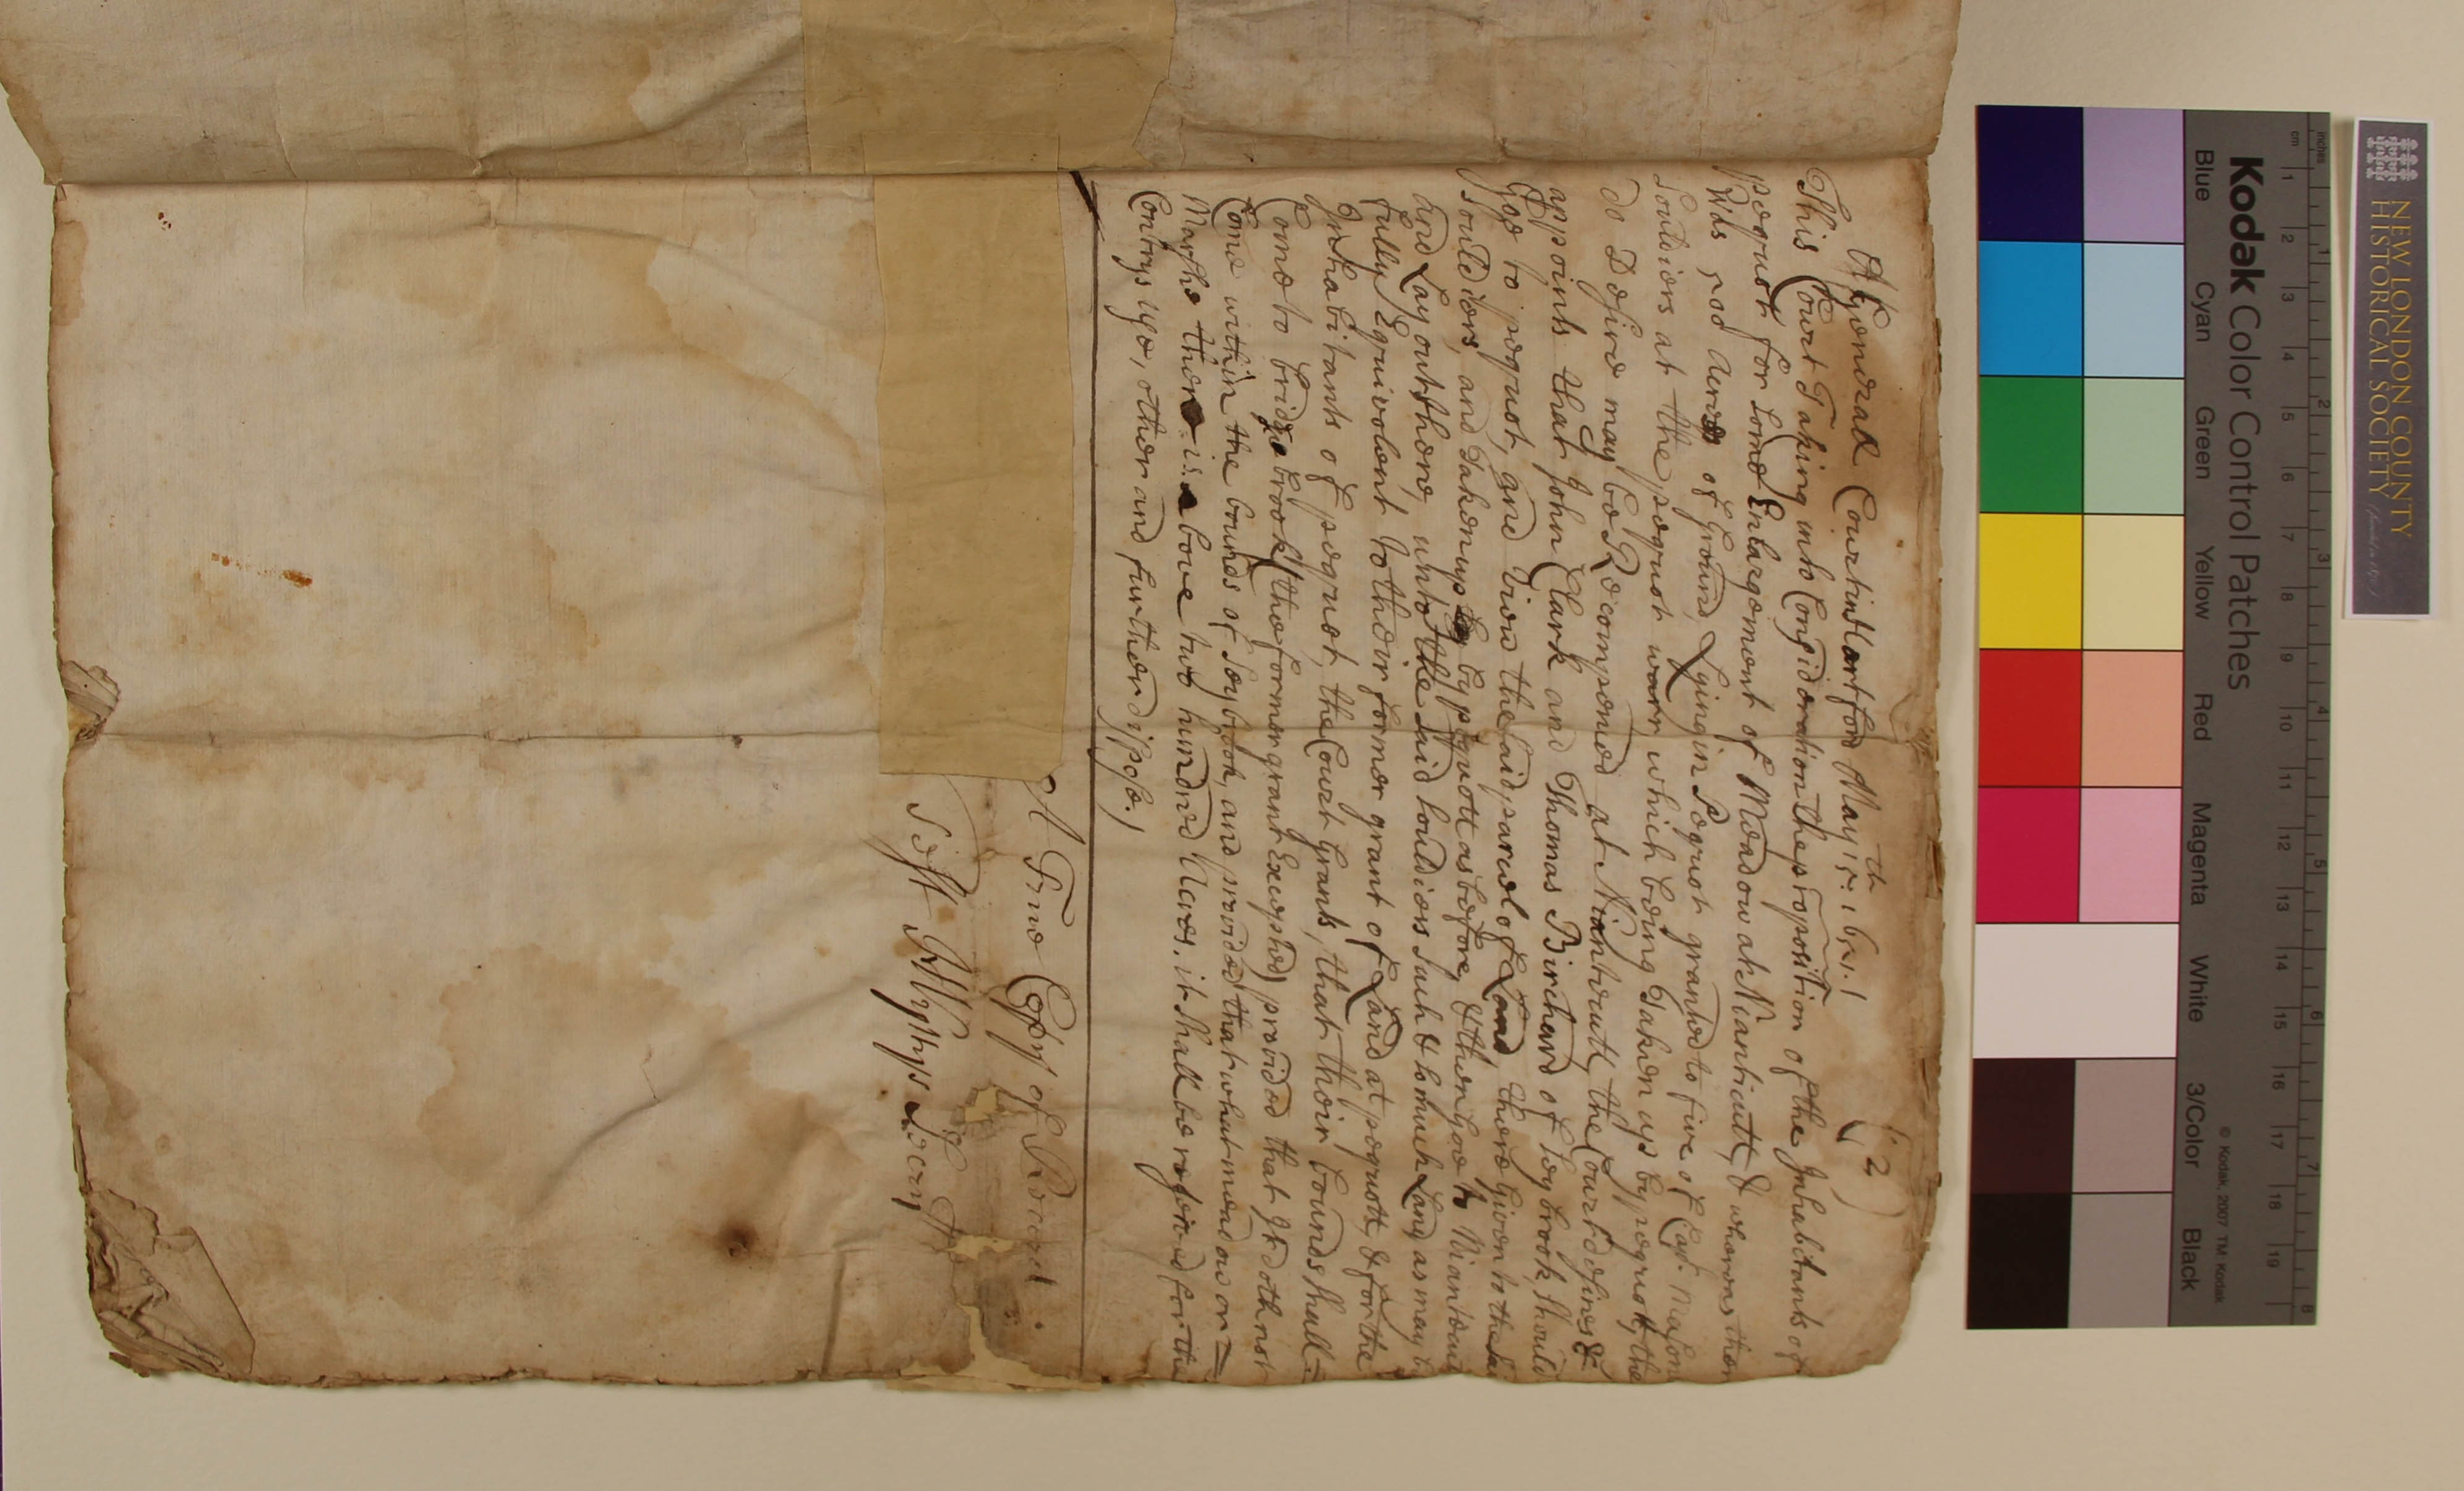 ( 2 )
A Generall Court in Hartford May 15:th 1651.
This Court Taking into Consideration the proposition of the Inhabitants of
pequot for some Enlargement of Meadow at Nianticutt, & whereas ther
500 Acres of Ground Lying in Pequot granted to five of Capt. Masons
Souldiers at the pequot warr, which being Taken up by pequott, the
do Desire may be Recompened at Niantecutt, the Court desires &
appoints that John Clark and Thomas Birchard of Seybrook should
goe to pequot, and View the said parcel of Land there Given to the sai
souldiers, and Taken up by pequott as before & then goe to Niantecutt
and Lay out there unto the said souldiers such & so much Land as may b
fully Equivolent to their former grant of Land at pequott, & for the
Inhabitants of pequot, the Court grants, that their bounds shall=
Come to bridge brook (the former grant Excepted) provided that It doth not
Come within the bounds of Seybrook, and provided that what meadow or=
Marshe there is above two hundred Acres, it shall be reserved for the
Contrys Use, other and further dispose.
A True Copy of Record:
Test H Wyllys Secry
Kodak Color Control Patches
© Kodak, 2007 TM: Kodak
inches 1 2 3 4 5 6 7 8
cm 1 2 3 4 5 6 7 8 9 10 11 12 13 14 15 16 17 18 19
Blue Cyan Green Yellow Red Magenta White 3/Color Black
NEW LONDON COUNTY
HISTORICAL SOCIETY